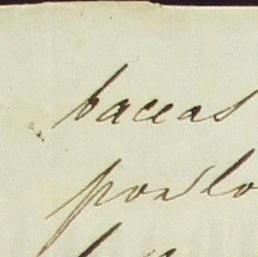 baccas
por lo